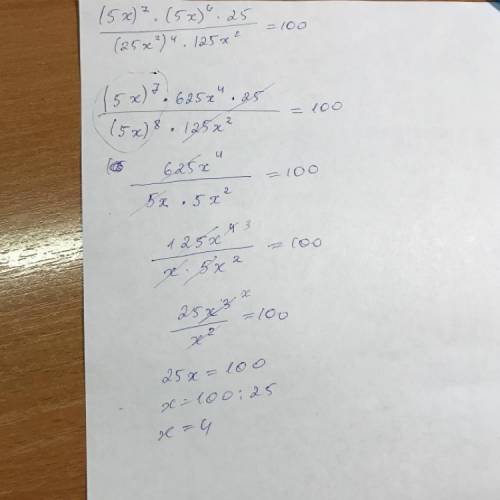 (5x)⁷ · (5x)⁴ · 25 / (25x²)⁴ · 125x² = 100
(5x)⁷ · 625x⁴ · 25 / (5x)⁸ · 125x² = 100
625x⁴ / 5x · 5x² = 100
125x⁴ ³ / x · 5x² = 100
25x³ x / x² = 100
25x = 100
x = 100 : 25
x = 4